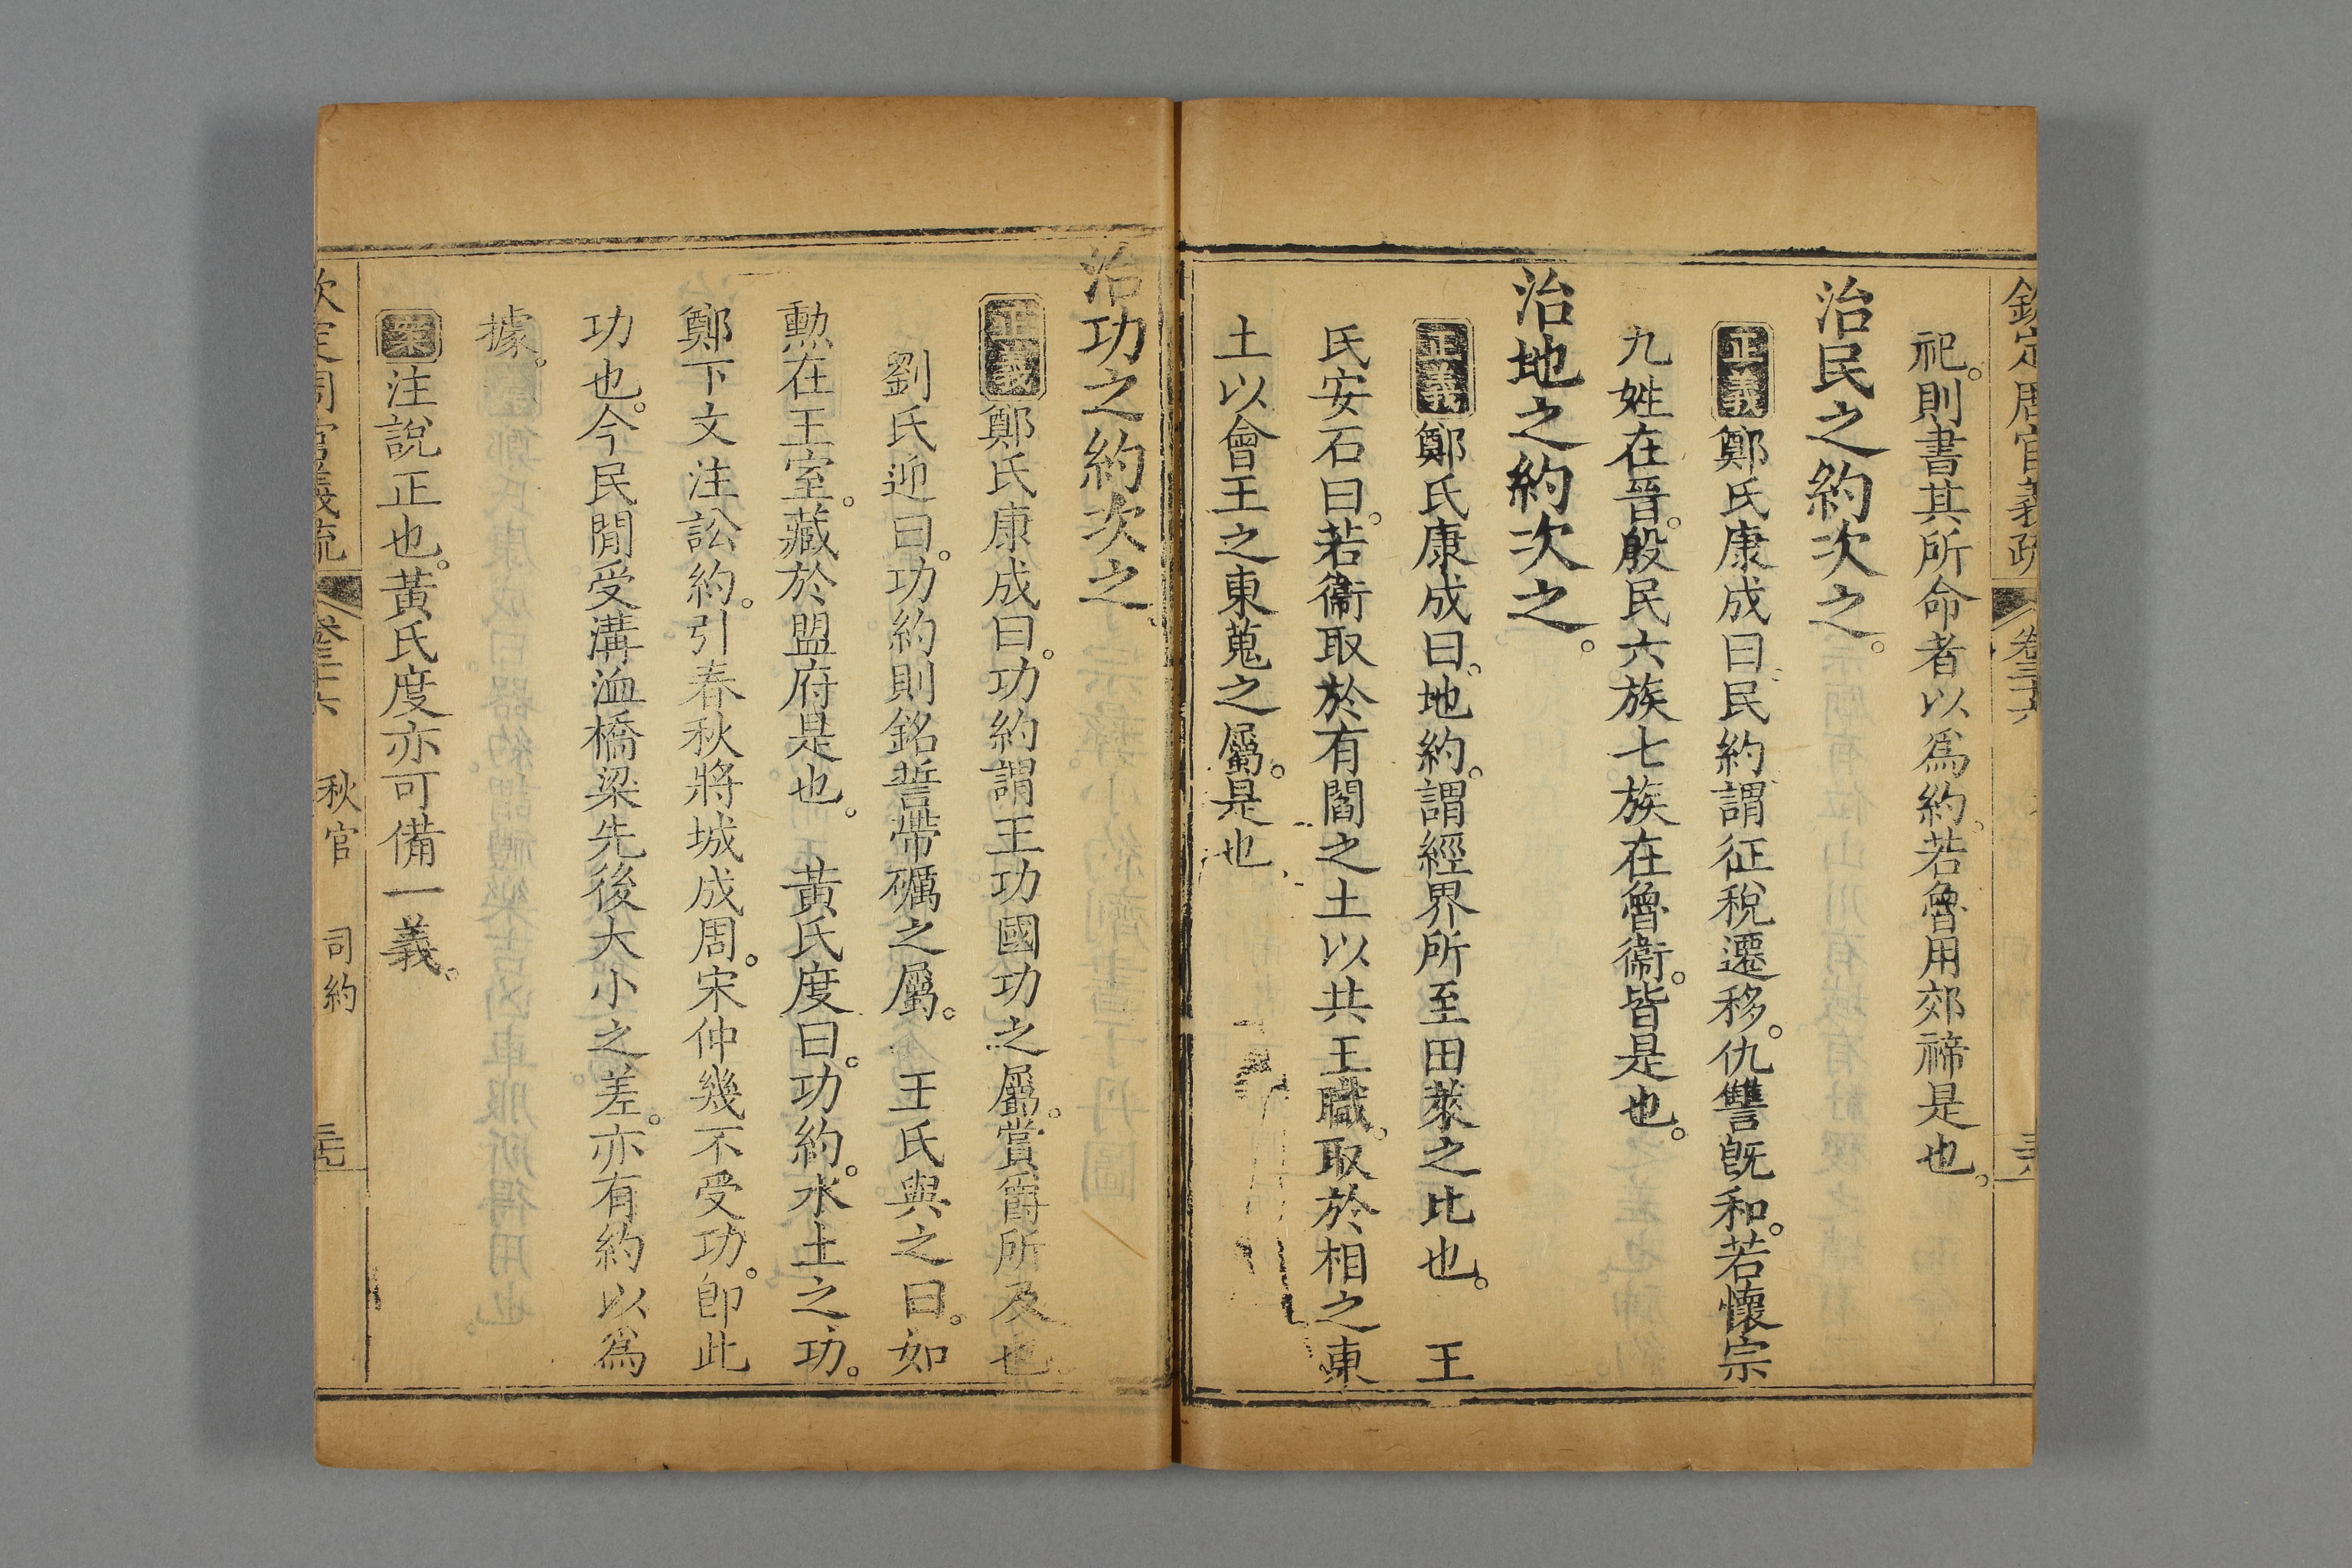 欽定周官義疏 卷三十六
祀。則書其所命者以爲約。若魯用郊禘是也。
治民之約次之。
正義鄭氏康成曰。民約謂征稅遷移。仇讐旣和。若懷宗
九姓在晉。殷民六族七族在魯衞。皆是也。
治地之約次之。
正義鄭氏康成曰。地約。謂經界所至田萊之比也。 王
氏安石曰。若衞取於有閻之土以共王職。取於相之東
土以會王之東蒐之屬。是也。
治功之約次之。
正義鄭氏康成曰。功約謂王功國功之屬。賞爵所及也。
劉氏迎曰。功約則銘誓帶礪之屬。 王氏與之曰。如
勳在王室。藏於盟府是也。 黃氏度曰。功約。水土之功。
鄭下文注訟約。引春秋將城成周。宋仲幾不受功。卽此
功也。今民閒受溝洫橋梁先後大小之差。亦有約以爲
據。
案注說正也。黃氏度亦可備一義。
欽定周官義疏 卷三十六 秋官 司約